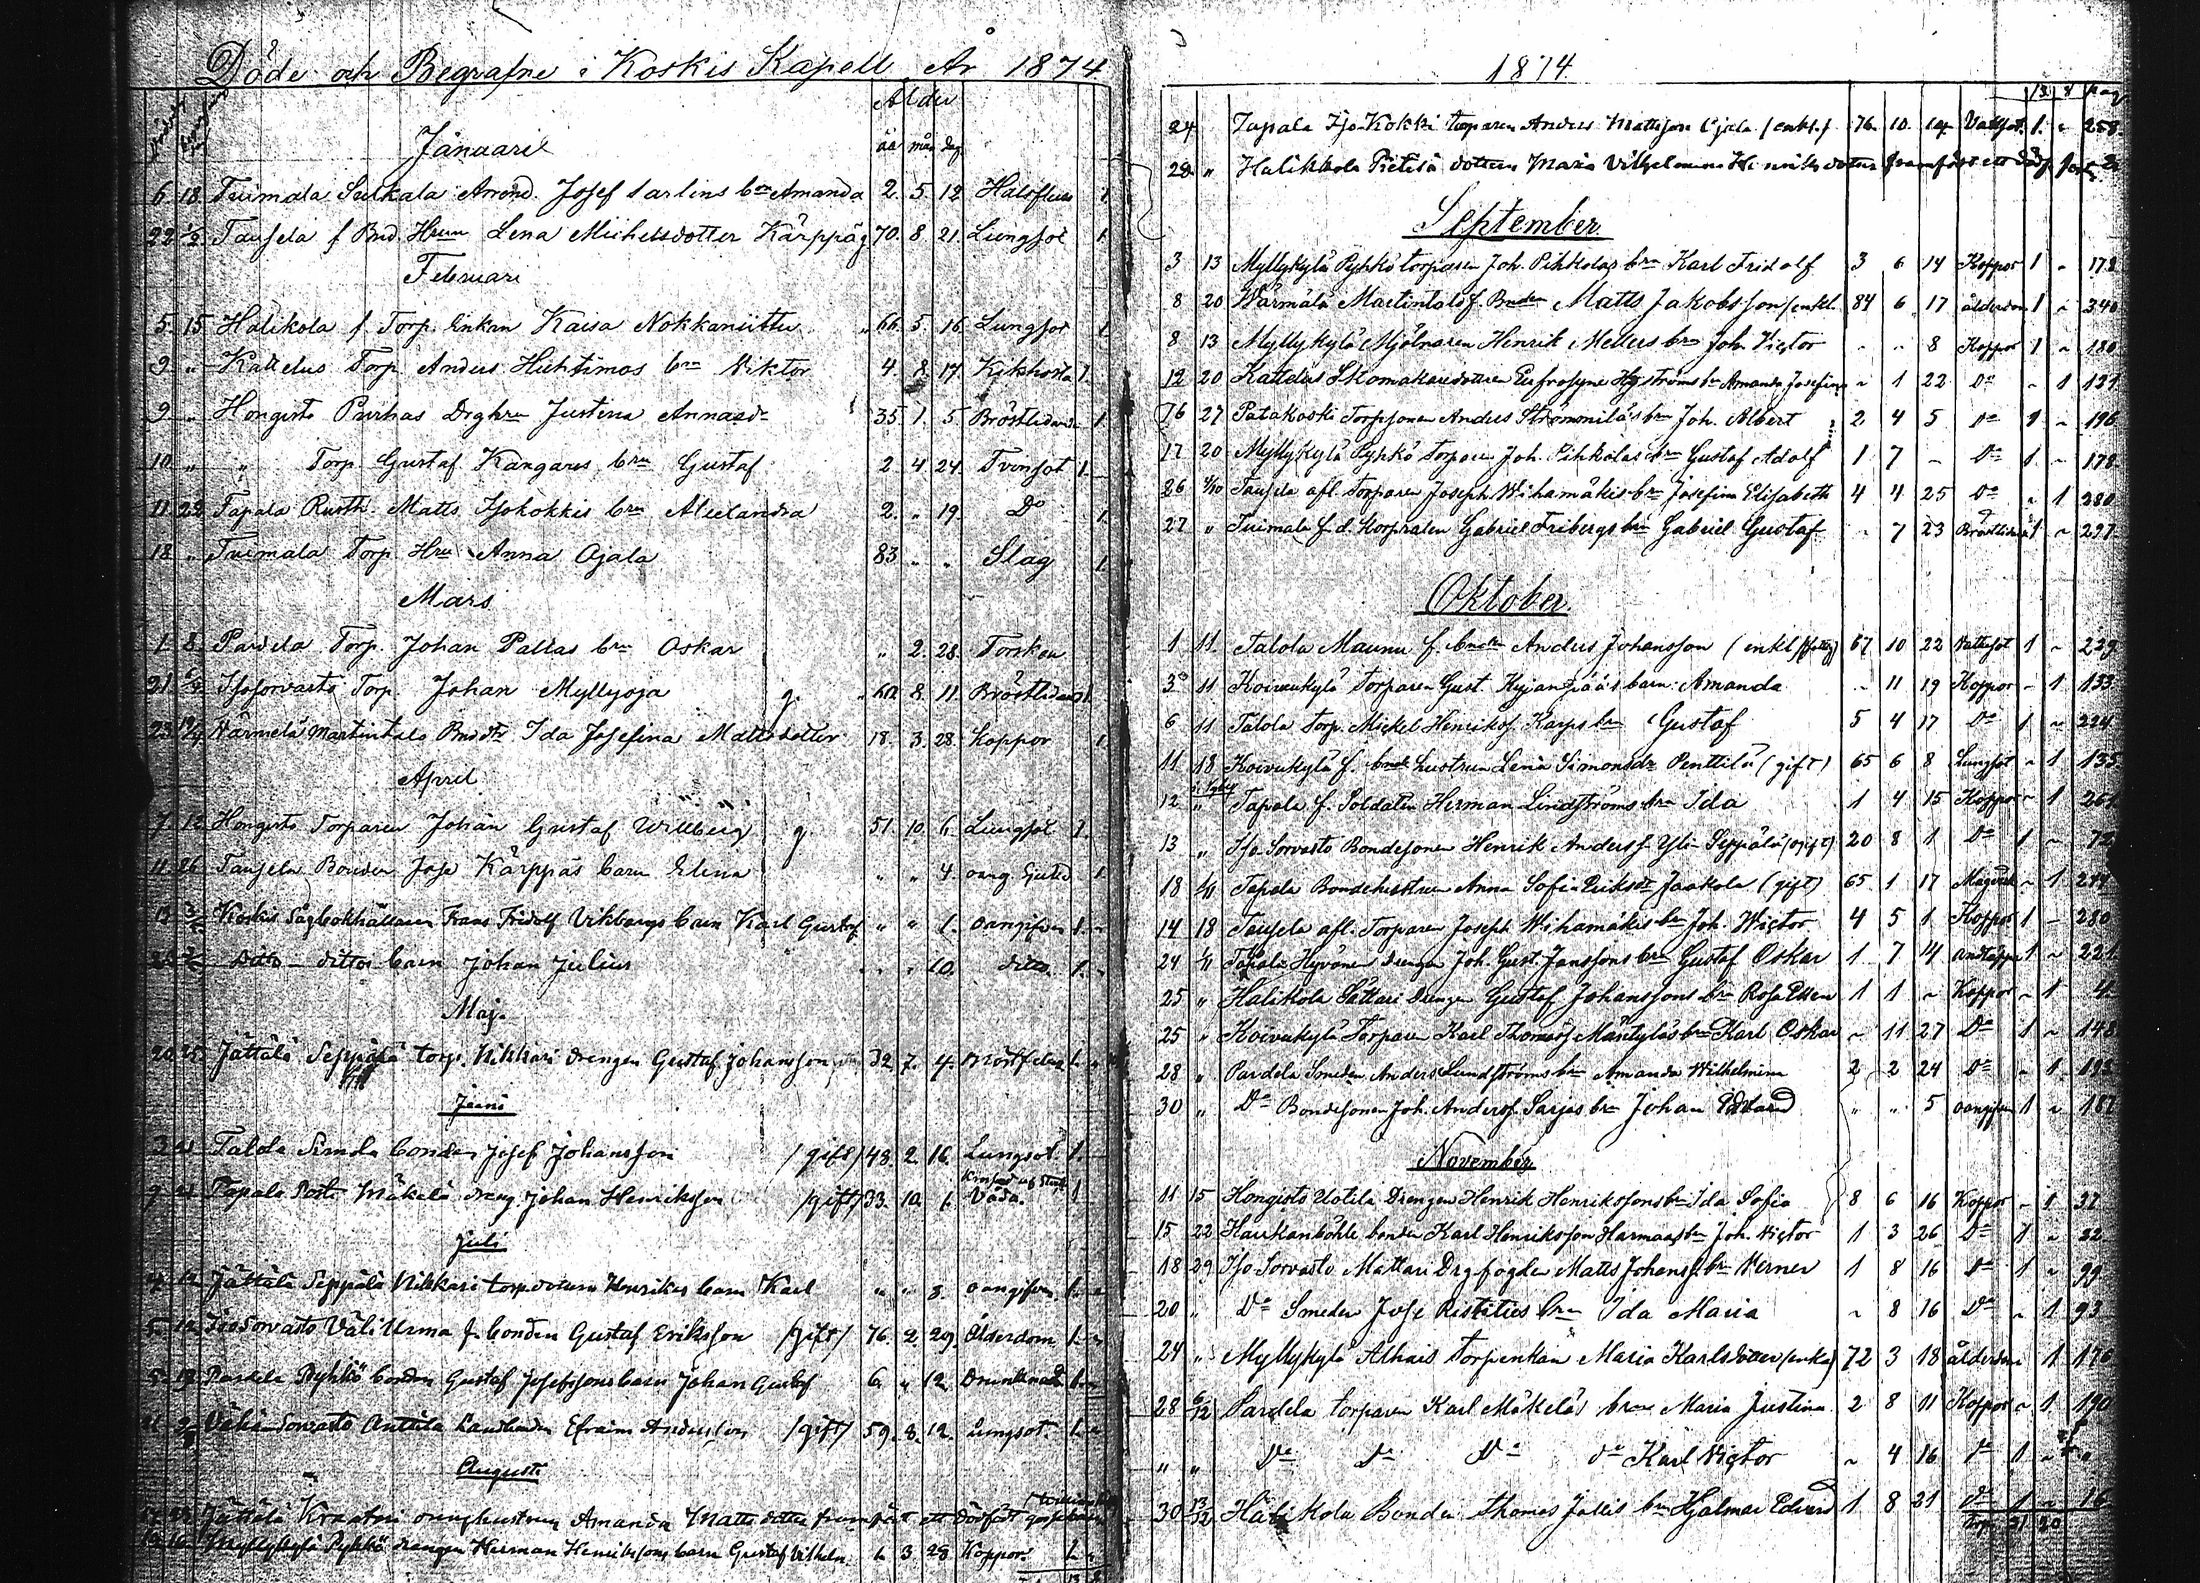 Döde och Begrafne i Koskis Kapell År 1874
Ålder
Januari
åå mån dag
6 18 Tuimala Sulkala Arrend. Josef Carlins brn Amanda 2. 5. 12 Halsfluss 1
22 1/2 Taufela f Bnd. Hru Lena Michelsdotter Kärppäg 70. 8 21. Lungsot 1
Februari
5. 15 Halikola f Torp. Enkan Kaisa Nokkaniittu 66. 5. 16. Lungsot 1
9 " Kattelus Torp. Anders Huhtimos brn Viktor 4. 8. 17. Kikhosta 1.
9 " Hongisto Purhas Drghru Justina Annasdr 35. 1. 5 Bröstlidande 1
10 " " Torp Gustaf Kangares brn Gustaf 2 4. 24. Tvinsot 1
11. 22 Tapala Rusth. Matts Isokokkis brn Alexandra 2. " 19. Do 1
18 " Tuimala Torp. Hru Anna Ojala 83 " " Slag 1
Mars
1. 8. Pardela Torp. Johan Pallas brn Oskar " 2. 28. Torsken
21 Isosorvasto Torp. Johan Myllyoja g. 8. 11. Bröstlidande 1
23 Närmelä Martintalo Bnddr Ida Josefina Mattsdotter 18. 3. 28. Koppor 1
April
7. 12 Hongisto Torparen Johan Gustaf Willberg g. 51. 10. 6. Lungsot 1.
11. 26 Taufela Bonden Josef Kärppäs barn Elina " " 4. oang. 1
Koskis Sågbokhållaren Frans Fridolf Vikbergs barn Karl Gustaf " " 1. oangifven 1.
Ditto – dittos barn Johan Julius " " 10. ditto. 1.
Maj.
20 25. Jättälä Seppälä torp. Nikkari drengen Gustaf Johansson 32 7. 4.
Juni
3 21 Talola Simola bonden Josef Johansson /gift/ 48. 2. 16. Lungsot 1.
9 21 Tapala Posti Mäkelä dreng Johan Henriksson /gift/ 33. 10. 1. Våda. 1
Juli
4 12 Jättälä Seppälä Nikkari torp.dotern Henrikas barn Karl " " 3. oangifven 1.
5. 12 Isosorvasto VäliUrma f. bonden Gustaf Eriksson /gift/ 76. 2. 29. Ålderdom 1.
5. 19 Pardela Pyhkö bonden Gustaf Josefssons barn Johan Gustaf 6. " 12. Drunknad 1
Vähä-Sorvasto Anttila Landbonden Efraim Andersson /gift/ 59. 8. 12. Lungsot. 1.
Augusti
Jättälä Kraatari drenghustrun Amanda Matts dotter framfört ett dödfödt gossebarn
Myllykylä Pyhkö drengen Herman Henrikssons barn Gustaf Vilhelm. 1. 3 28 Koppor. 1.
1874
pag
24 Tapala Iso-Kokki torparen Anders Mattsson Ojala /enkl./ 76. 10. Vattsot. 1. 258
28 " Halikkola Pietilä dottern Maria Vilhelmina Henriksdotter framfört ett dödf.
September
3 13 Myllykylä Pyhkö torparen Joh. Pihkolas brn Karl Fridolf 3 6 14 Koppor 1 - 178
8 20 Närmälä Martintalo f. Bnden Matts Jakobsson /enkl. 84 6 17 ålderdom 1 - 340
8 13 Myllykylä Mjölnaren Henrik Mellers brn Joh. Victor - " 8 Koppor 1 - 180
12 20 Kattelus Skomakaredottren Eufrosyne Hgströms brn Amanda Josefina - 1 22 Do - 1 137
16 27 Patakoski Torpsonen Anders Strömniläs brn Joh. Albert 2 4 5 Do 1 - 196
17 20 Myllykylä Pyhkö Torparen Joh. Pihkolas brn Gustaf Adolf 1 7 - Do 1 - 178
26 4/10 Taufela afl. Torparen Joseph Wihamäkis brn Josefina Elisabeth 4 4 25 Do - 1 280
27 " Tuimala f. d. Korpralen Gabriel Fribergs brn Gabriel Gustaf - 7 23 Bröstlidande 1 - 297
Oktober.
1 11. Talola Maunu f. bnden Anders Johansson (enkl) 67 10 22 Vattusot 1 - 229
3 11 Koivukylä Torparen Gust. Kyianpääs barn Amanda - 11 19 Koppor - 1 133
6 11 Talola Torp. Mickel Henriksf. Karps brn Gustaf 5 4 17 Do 1 - 224
11 18 Koivukylä f. bnde hustrun Lena Simonsdr Penttilä (gift) 65 6 8 Lungsot - 1 135
12 " Tapala f. Soldaten Herman Lindströms brn Ida 1 4 15 Koppor - 1
13 " Iso-Sorvasto Bondesonen Henrik Andersf. Yli-Seppälä (ogift) 20 8 1 Do 1 - 72
18 1/11 Tapala Bondehustrun Anna Sofia Eriksdr Jaakola (gift) 65 1 17 - 1
14 18 Taufela afl. Torparen Joseph Wihamäkis brn Joh. Wictor 4 5 1 Koppor 1 - 280
24 1/11 Tapala Hyvönen Drengen Joh. Gust. Janssons brn Gustaf Oskar 1 7 14 Andtäppa 1 - 221
25 " Halikola Sattari Drengen Gustaf Johanssons brn Rosa Ellen 1 1 - Koppor - 1 4
25 " Koivukylä Torparen Karl Thomasf Mäntyläs brn Karl Oskar - 11 27 Do 1 - 148
28 " Pardela Smeden Anders Lundströms brn Amanda Wilhelmina 2 2 24 Do - 1
30 " Do Bondesonen Joh. Andersf. Sarjas brn Johan Edvard " " 5 oangifven 1 - 187
November
11 15 Hongisto Uotila Drengen Henrik Henrikssons brn Ida Sofia 8 6 16 Koppor - 1 37
15 22 Haukanböhle bonden Karl Henriksson Harmaas brn Joh. Victor 1 3 26 Do 1 - 22
18 29 Iso Sorvasto Mattari Drgfogden Matts Johansf. brn Verner 1 8 16 Do 1 - 99
20 " Do Smeden Josef Ristities brn Ida Maria - 8 16 Do - 1 93
24 " Myllykylä Alhais Torpenkan Maria Karlsdotter (enka) 72 3 18 ålderdom 1 176
28 6/12 Pardela torparen Karl Mäkeläs brn Maria Justina 2 8 11 Koppor - 1 190
" " Do Do Do do Karl Victor - 4 16 Do 1 - "
30 13/12 Halikola Bonden Thomas Jallis brn Hjalmar Edvard 1 8 21 Do 1 - 16